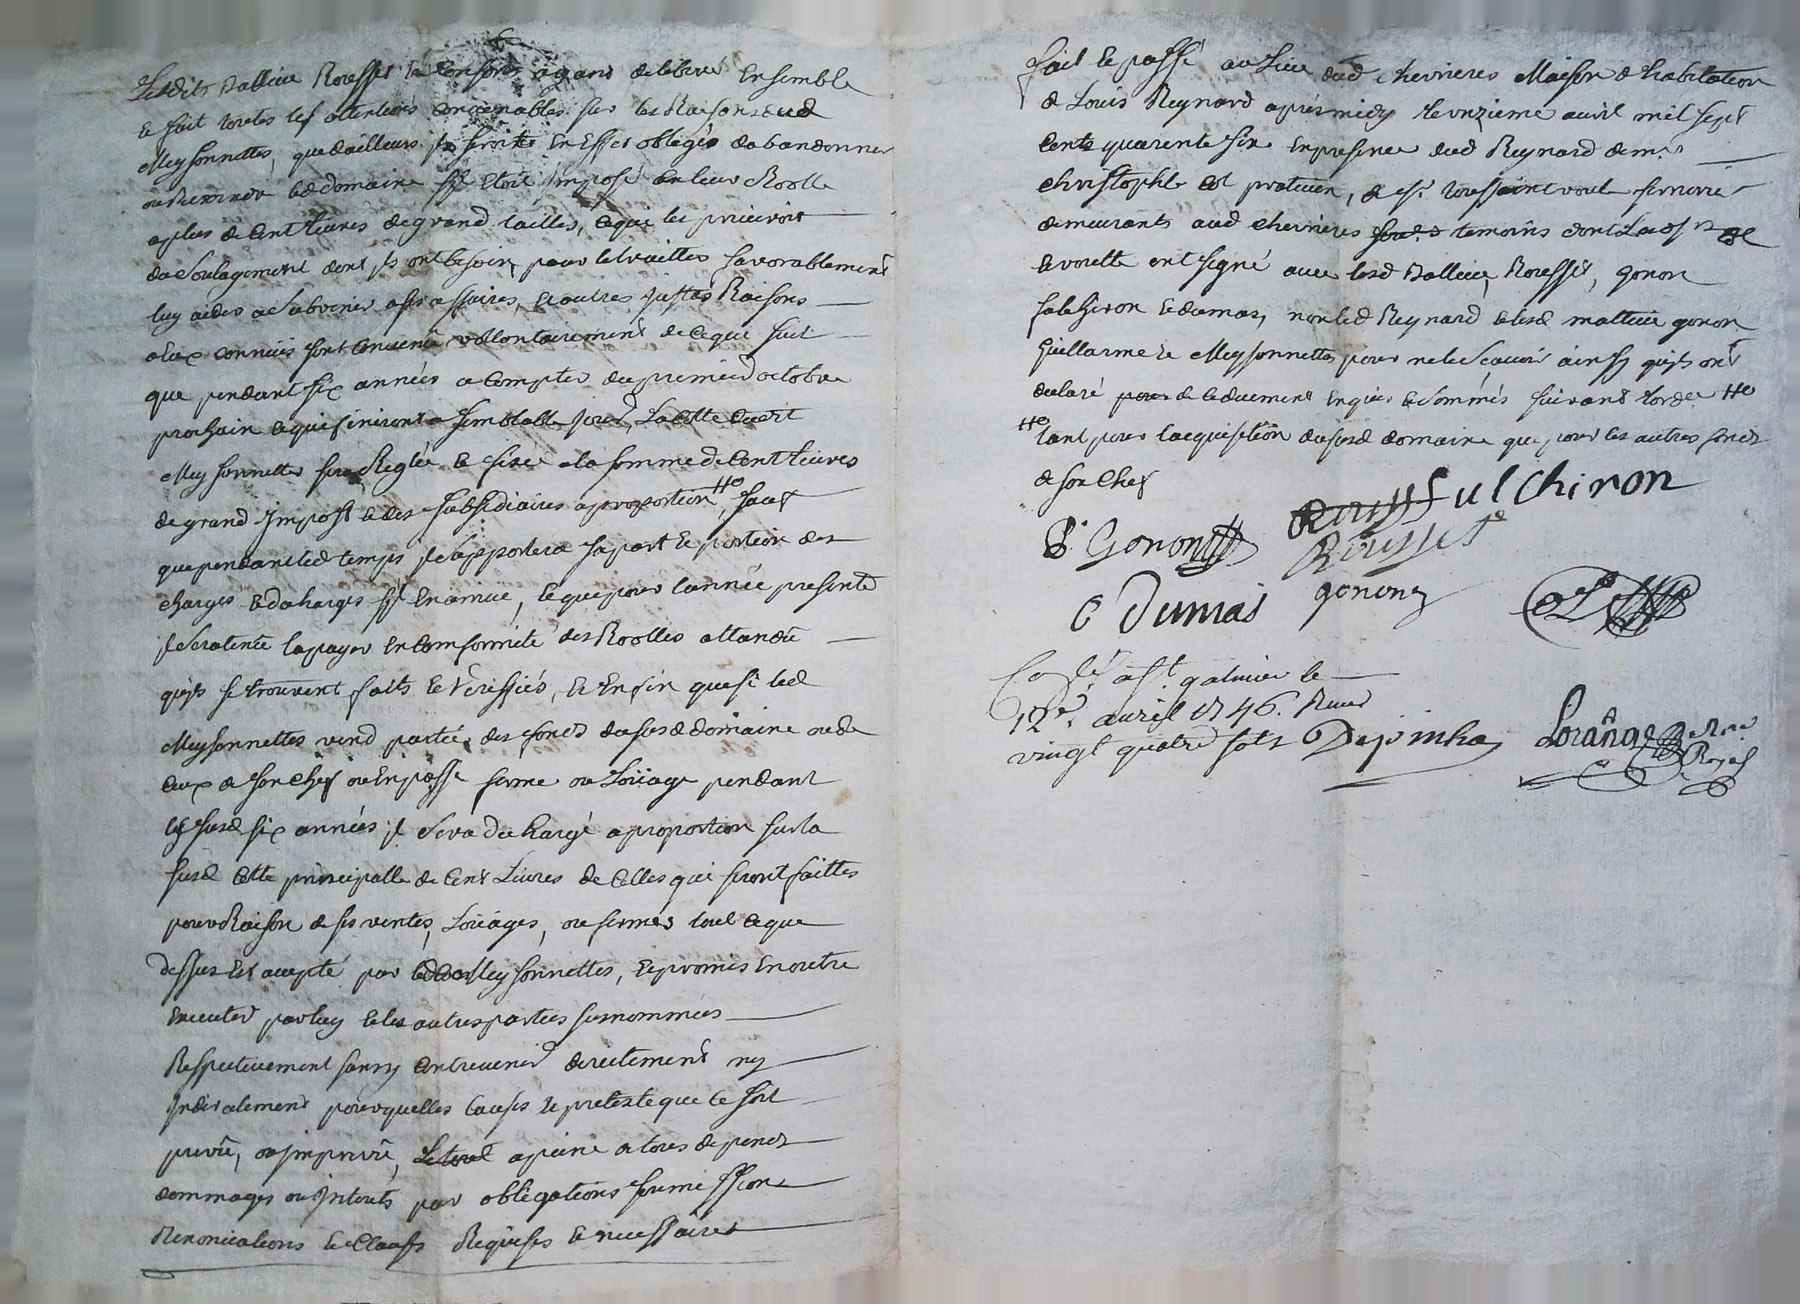 Lesdits Mallieu Rousset et Consorts ayans deliberé Ensemble
et fait toutes les attentions Convenables sur les Raisons dud
Meysonnettes, que dailleurs il seroit En Effet obligés dabandonner
ou Revendre led domaine sil Etoit imposé en leur Roolle
a plus de Cent Livres de grand tailles, Ce qui les priveroit
du Soulagement dont ils ont besoin, pour le traitter favorablement
luy aider a Subvenir a ses affaires, et autres justes Raisons
a Eux connües sont Convenu vollontairement de Ce qui suit
que pendant six années a Compter du premier octobre
prochain Et qui finiront a semblable jour, La Cotte dudit
Meysonnettes sera Reglée et fixée a la somme de Cent Livres
de grand Impost et des subsidiaires a proportion #, sauf
que pendant led temps il supportera sa part et portion des
charges et decharges sil En arrive, Et que pour l'année presente
il Sera tenu la payer En Conformité des Roolles attandu
quils se trouvent faits et Verifiés, Et Enfin que si led
Meysonnettes vend partie des fonds du susd domaine ou de
Ceux de son chef ou En passe ferme ou Loüage pendant
les susd six années il Sera decchargé a proportion sur la
susd Cotte principalle de Cent Livres de Celles qui seront faittes
pour Raison de ses ventes, Loüages, ou fermes tout Ce que
dessus Est accepté par led Meysonnettes, Et promis En outre
Executer par luy et les autres parties surnommées
Respectivement sans y Contrevenir directement ny
Indirectement pour quelles Causes et pretexte que Ce soit
prevû, ou imprevû, Le tout a peine de tous depens
dommages ou Interets par obligations soumissions
Renonciations et Clauses Requises et necessaires
fait et passé au Lieu dud chevrieres Maison d'habitation
de Louis Reynard aprés midy le onzieme avril mil sept
Cents quarente six En presence dud Reynard de mr
christophle praticien, de sr toussaint
demeurants aud chevrieres temoins dont
ont signé avec lesd Mallieu, Rousset, gonon
fulchiron et dumas, non led Reynard et lesd mattieu gonon
Guillarme et Meysonnettes pour ne le Scavoir ainsy quils ont
declaré de ce duement Enquis et Sommés suivant lordre #
# tant pour lacquisition du susd domaine que pour les autres fonds
de son Chef
fulchiron
P. Gonon
Rousset
C Dumas
gonon
Collé a st galmier le
12e avril 1746. Receu
vingt quatre sols Depinhac
Lorange No.re
Royal